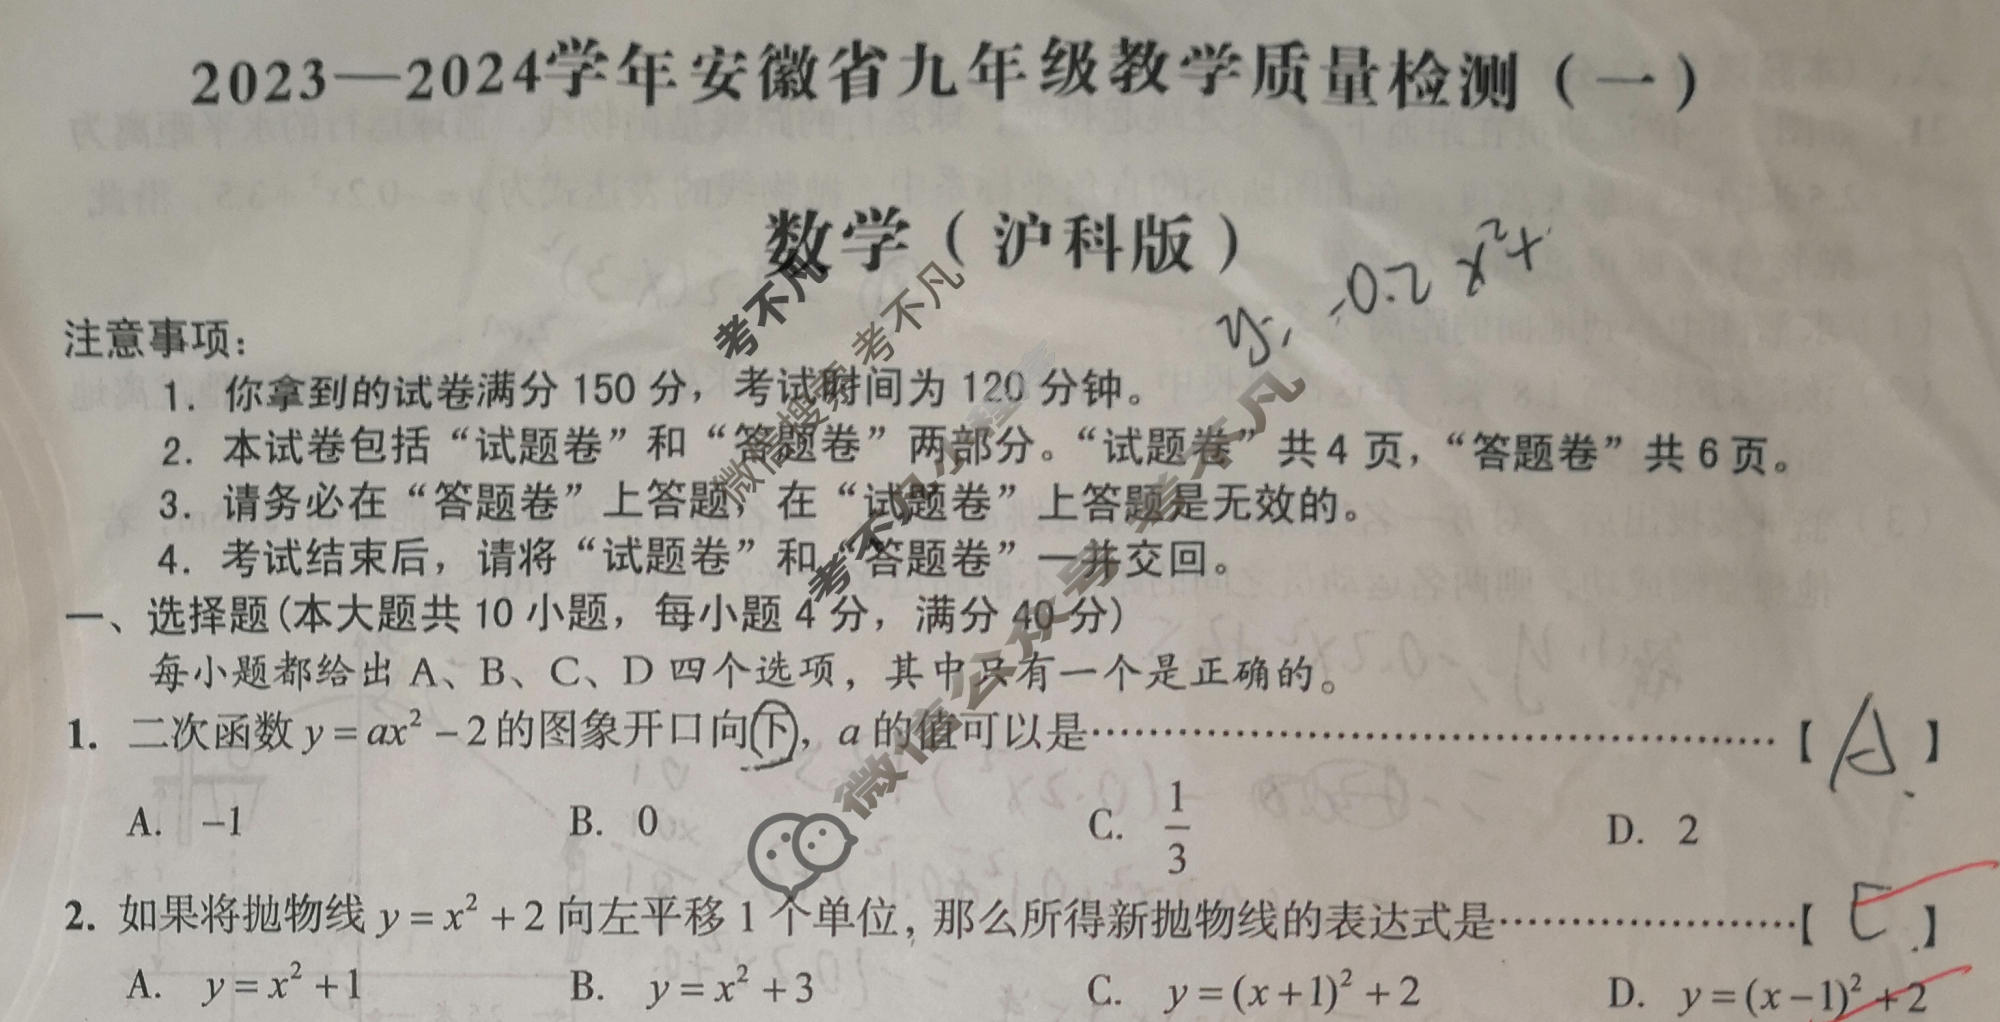 2023—2024学年安徽省九年级教学质量检测（一）
数学（沪科版）
y=-0.2x²+
注意事项：
1. 你拿到的试卷满分 150 分，考试时间为 120 分钟。
2. 本试卷包括“试题卷”和“答题卷”两部分。“试题卷”共 4 页，“答题卷”共 6 页。
3. 请务必在“答题卷”上答题，在“试题卷”上答题是无效的。
4. 考试结束后，请将“试题卷”和“答题卷”一并交回。
一、选择题(本大题共 10 小题，每小题 4 分，满分 40 分)
每小题都给出 A、B、C、D 四个选项，其中只有一个是正确的。
1. 二次函数 y = ax² − 2 的图象开口向下，a 的值可以是……………………………………【 A 】
A. −1 B. 0 C. 1/3 D. 2
2. 如果将抛物线 y = x² + 2 向左平移 1 个单位，那么所得新抛物线的表达式是…………………【 C 】
A. y = x² + 1 B. y = x² + 3 C. y = (x + 1)² + 2 D. y = (x − 1)² + 2
考不凡
微信搜索 考不凡
考不凡小程序
微信公众号 考不凡